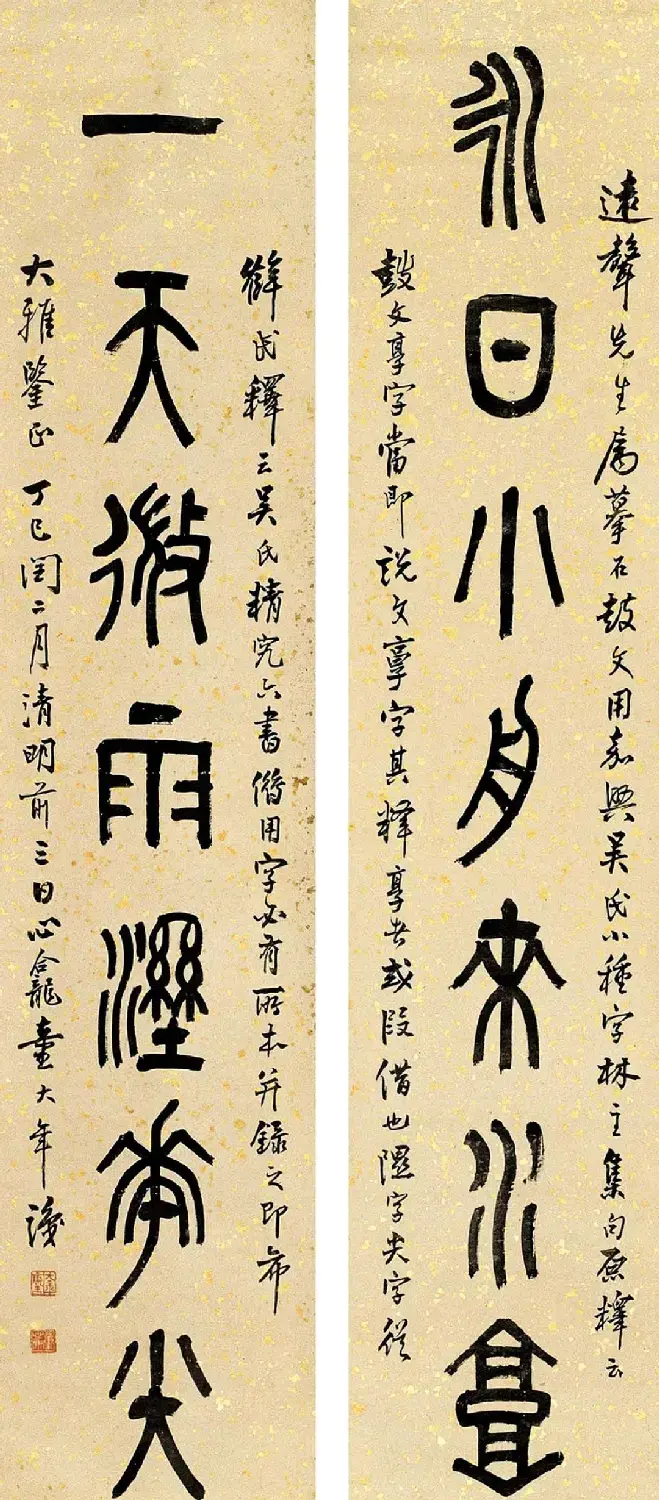 遠聲先生屬摹石鼓文用嘉興吳氏小種字林主集句原釋云
永日小舟來水𩫏
鼓文享字當即說文𩫏字其釋享者或叚借也隰字尖字從
薛氏釋云吳氏精究六書借用字必有所本并錄之即希
一天微雨溼華尖
大雅鑒正 丁巳閏二月清明前三日心龕童大年識